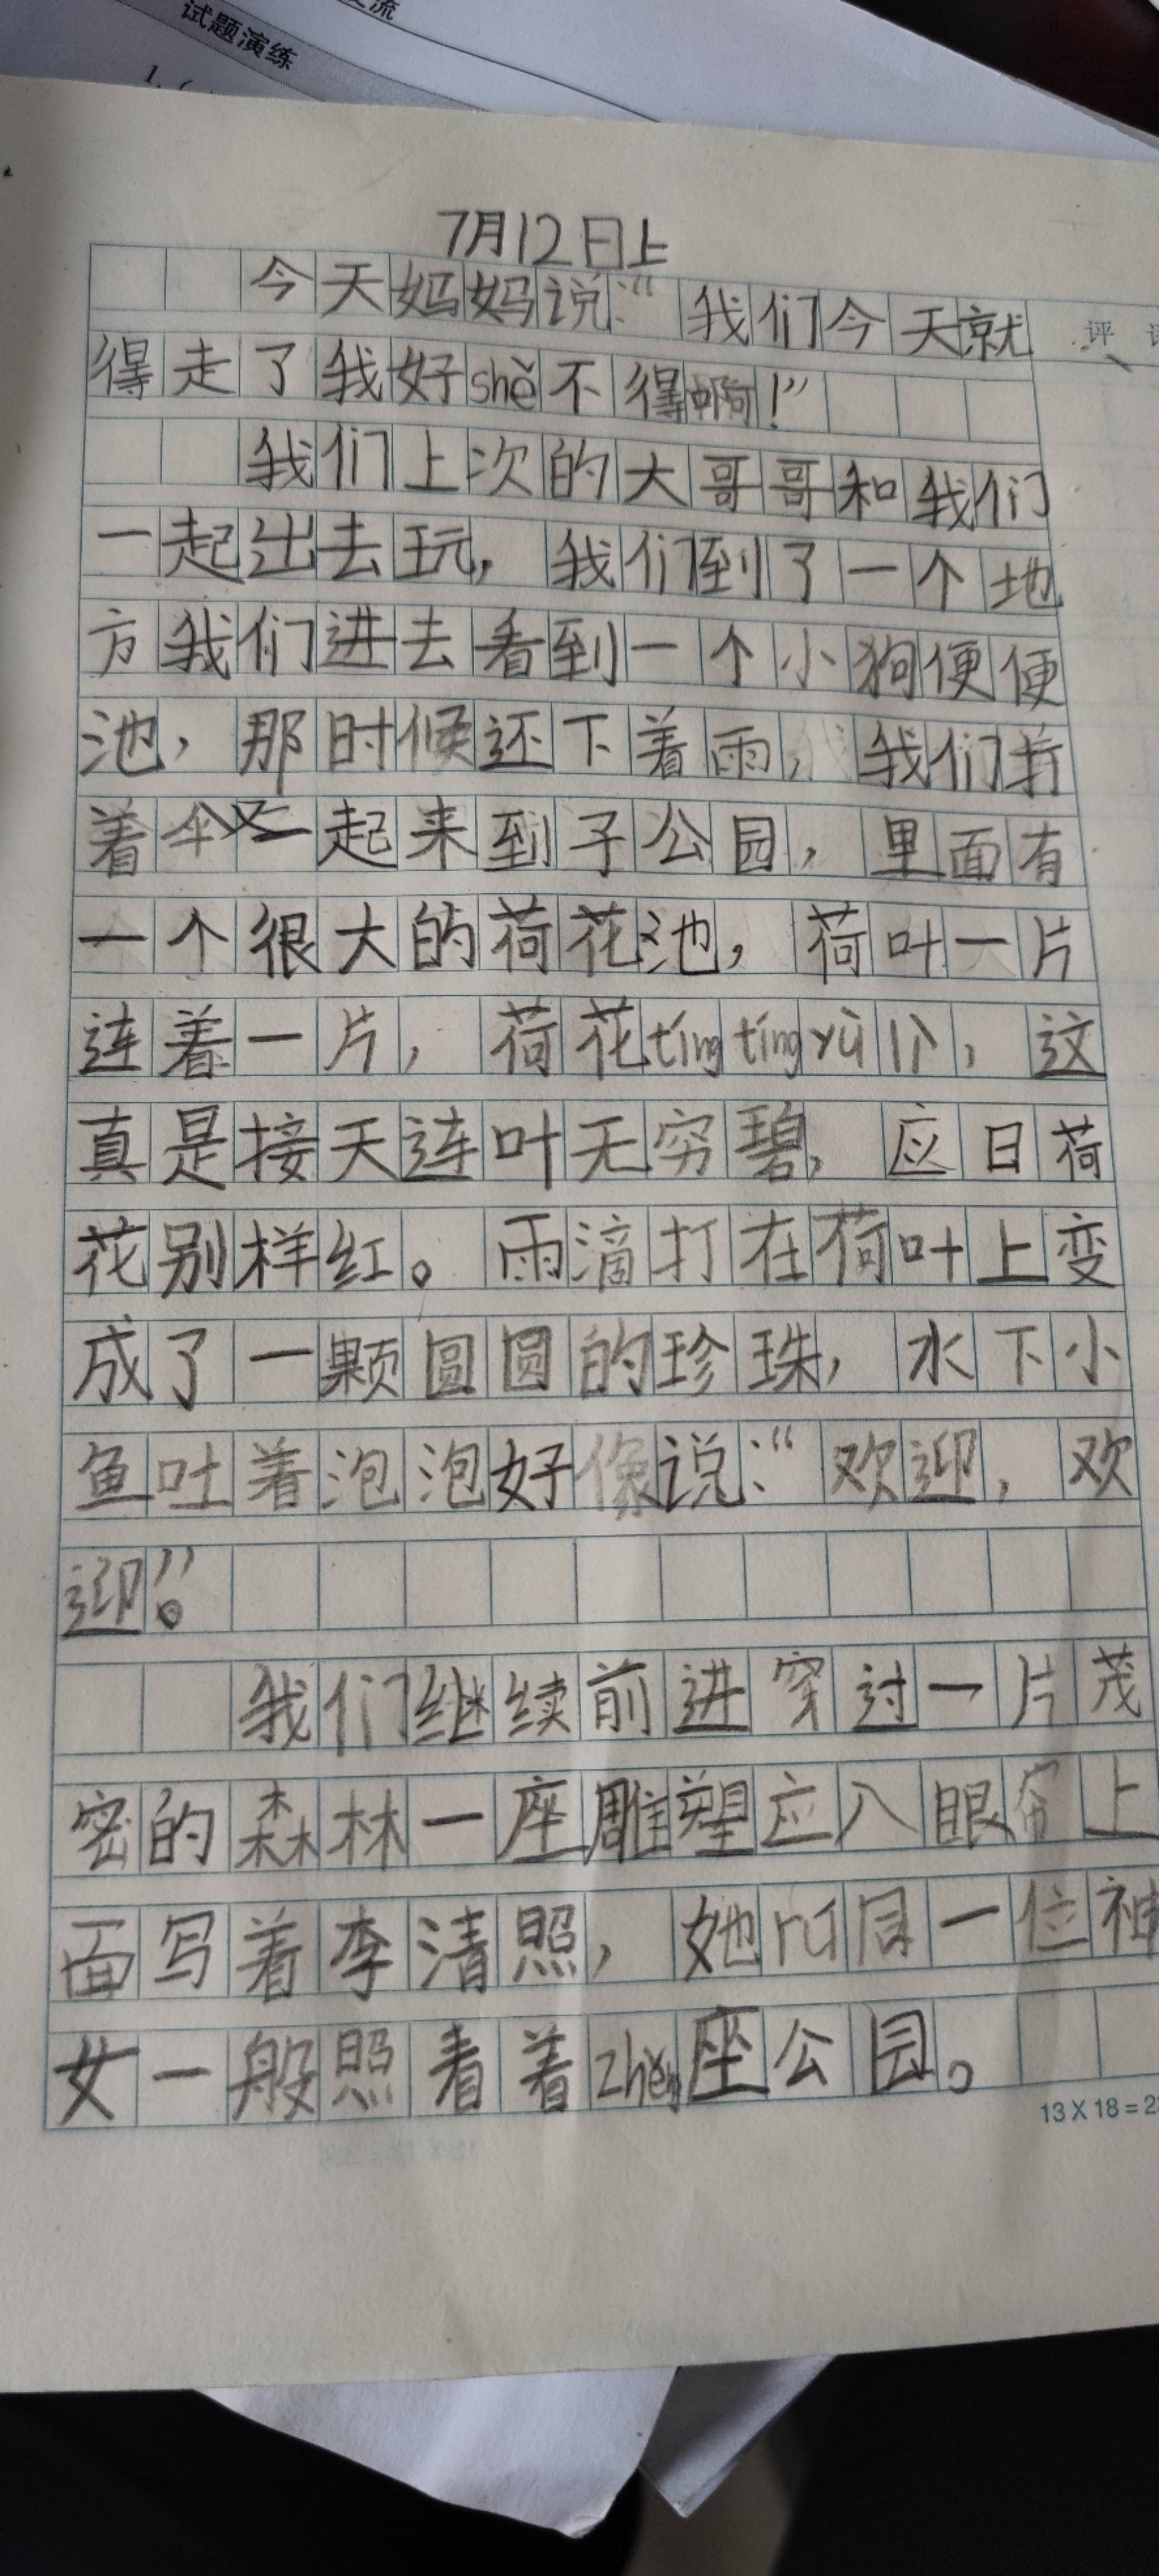 交流
试题演练
1. (
7月12日上
今天妈妈说:“我们今天就
评
得走了我好shě不得啊!”
我们上次的大哥哥和我们
一起出去玩,我们到了一个地
方我们进去看到一个小狗便便
池,那时候还下着雨,我们打
着伞又一起来到子公园,里面有
一个很大的荷花池,荷叶一片
连着一片,荷花tíng tíng yù 立,这
真是接天连叶无穷碧,应日荷
花别样红。雨滴打在荷叶上变
成了一颗圆圆的珍珠,水下小
鱼吐着泡泡好像说:“欢迎,欢
迎”。
我们继续前进穿过一片茂
密的森林一座雕塑应入眼帘上
面写着李清照,她rú同一位神
女一般照看着zhěng座公园。
13×18=2